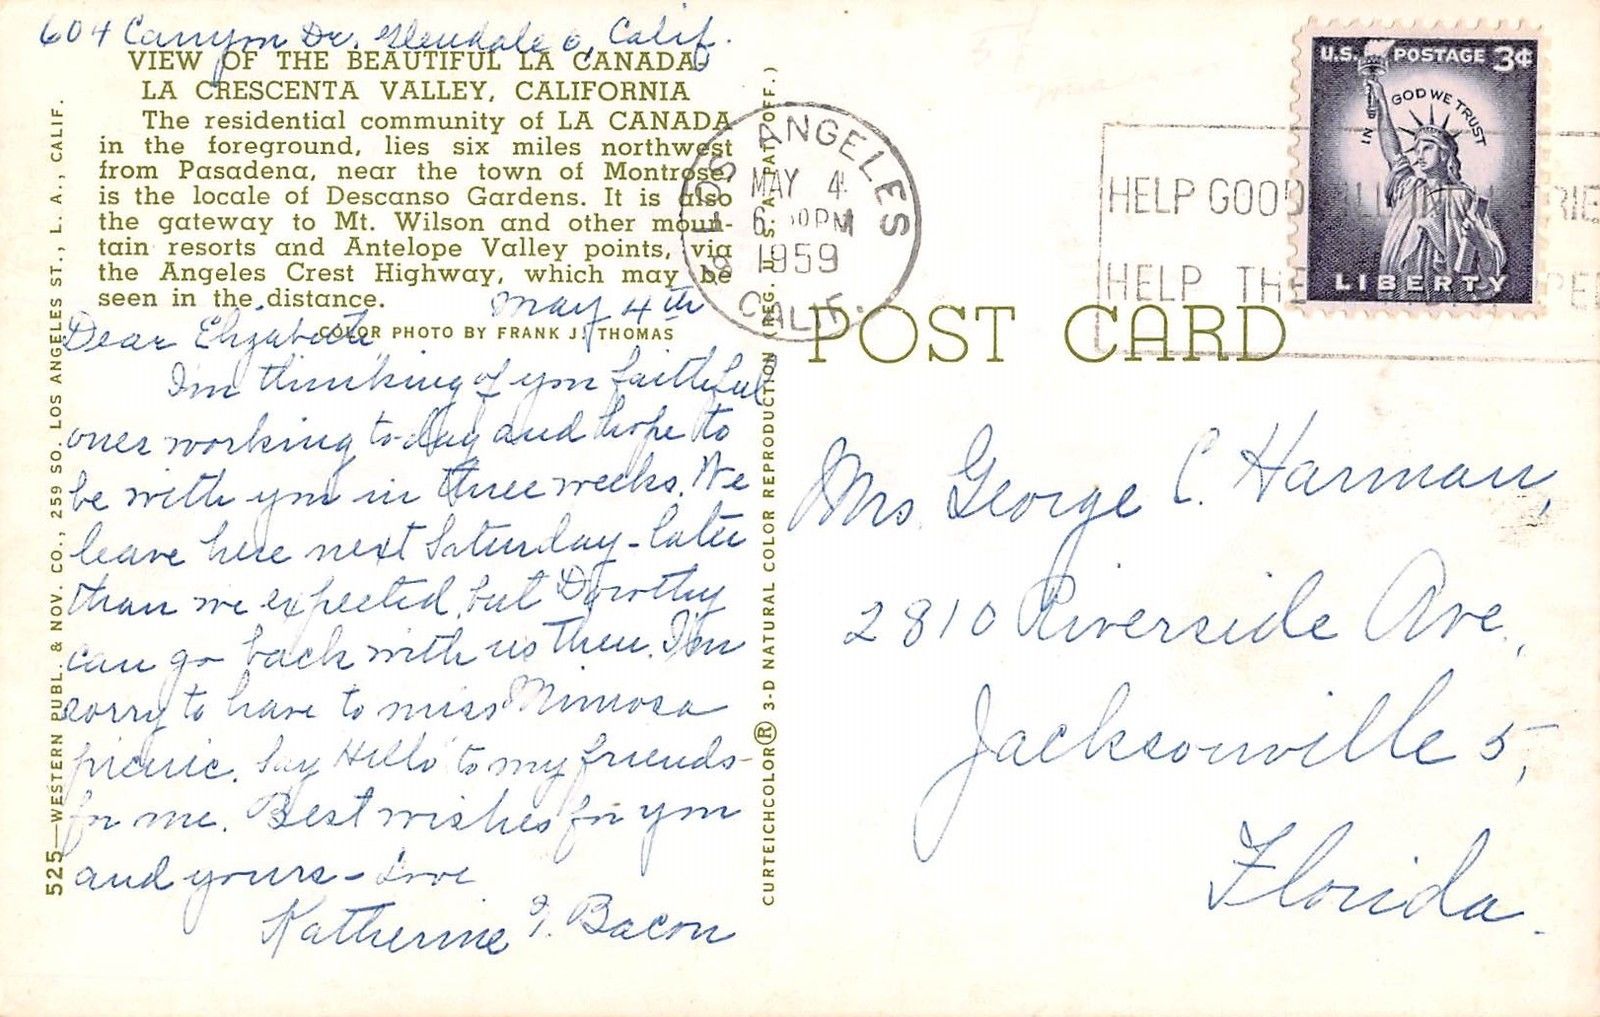 604 Canyon Dr. Glendale 6, Calif.
VIEW OF THE BEAUTIFUL LA CANADA-
LA CRESCENTA VALLEY, CALIFORNIA
The residential community of LA CANADA
in the foreground, lies six miles northwest
from Pasadena, near the town of Montrose,
is the locale of Descanso Gardens. It is also
the gateway to Mt. Wilson and other moun-
tain resorts and Antelope Valley points, via
the Angeles Crest Highway, which may be
seen in the distance.
COLOR PHOTO BY FRANK J. THOMAS
May 4th
Dear Elizabeth,
I'm thinking of you faithful
ones working to-day and hope to
be with you in three weeks. We
leave here next Saturday - later
than we expected, but Dorothy
can go back with us then. I'm
sorry to have to miss Mimosa
picnic. Say "Hello" to my friends
for me. Best wishes for you
and yours - Love
Katherine F. Bacon
525—WESTERN PUBL. & NOV. CO., 259 SO. LOS ANGELES ST., L. A., CALIF.
CURTEICHCOLOR® 3-D NATURAL COLOR REPRODUCTION (REG. U. S. PAT. OFF.)
POST CARD
LOS ANGELES
MAY 4
1959
CALIF.
HELP
HELP THE
U.S. POSTAGE 3¢
IN GOD WE TRUST
LIBERTY
Mrs. George C. Harman,
2810 Riverside Ave.,
Jacksonville 5,
Florida.